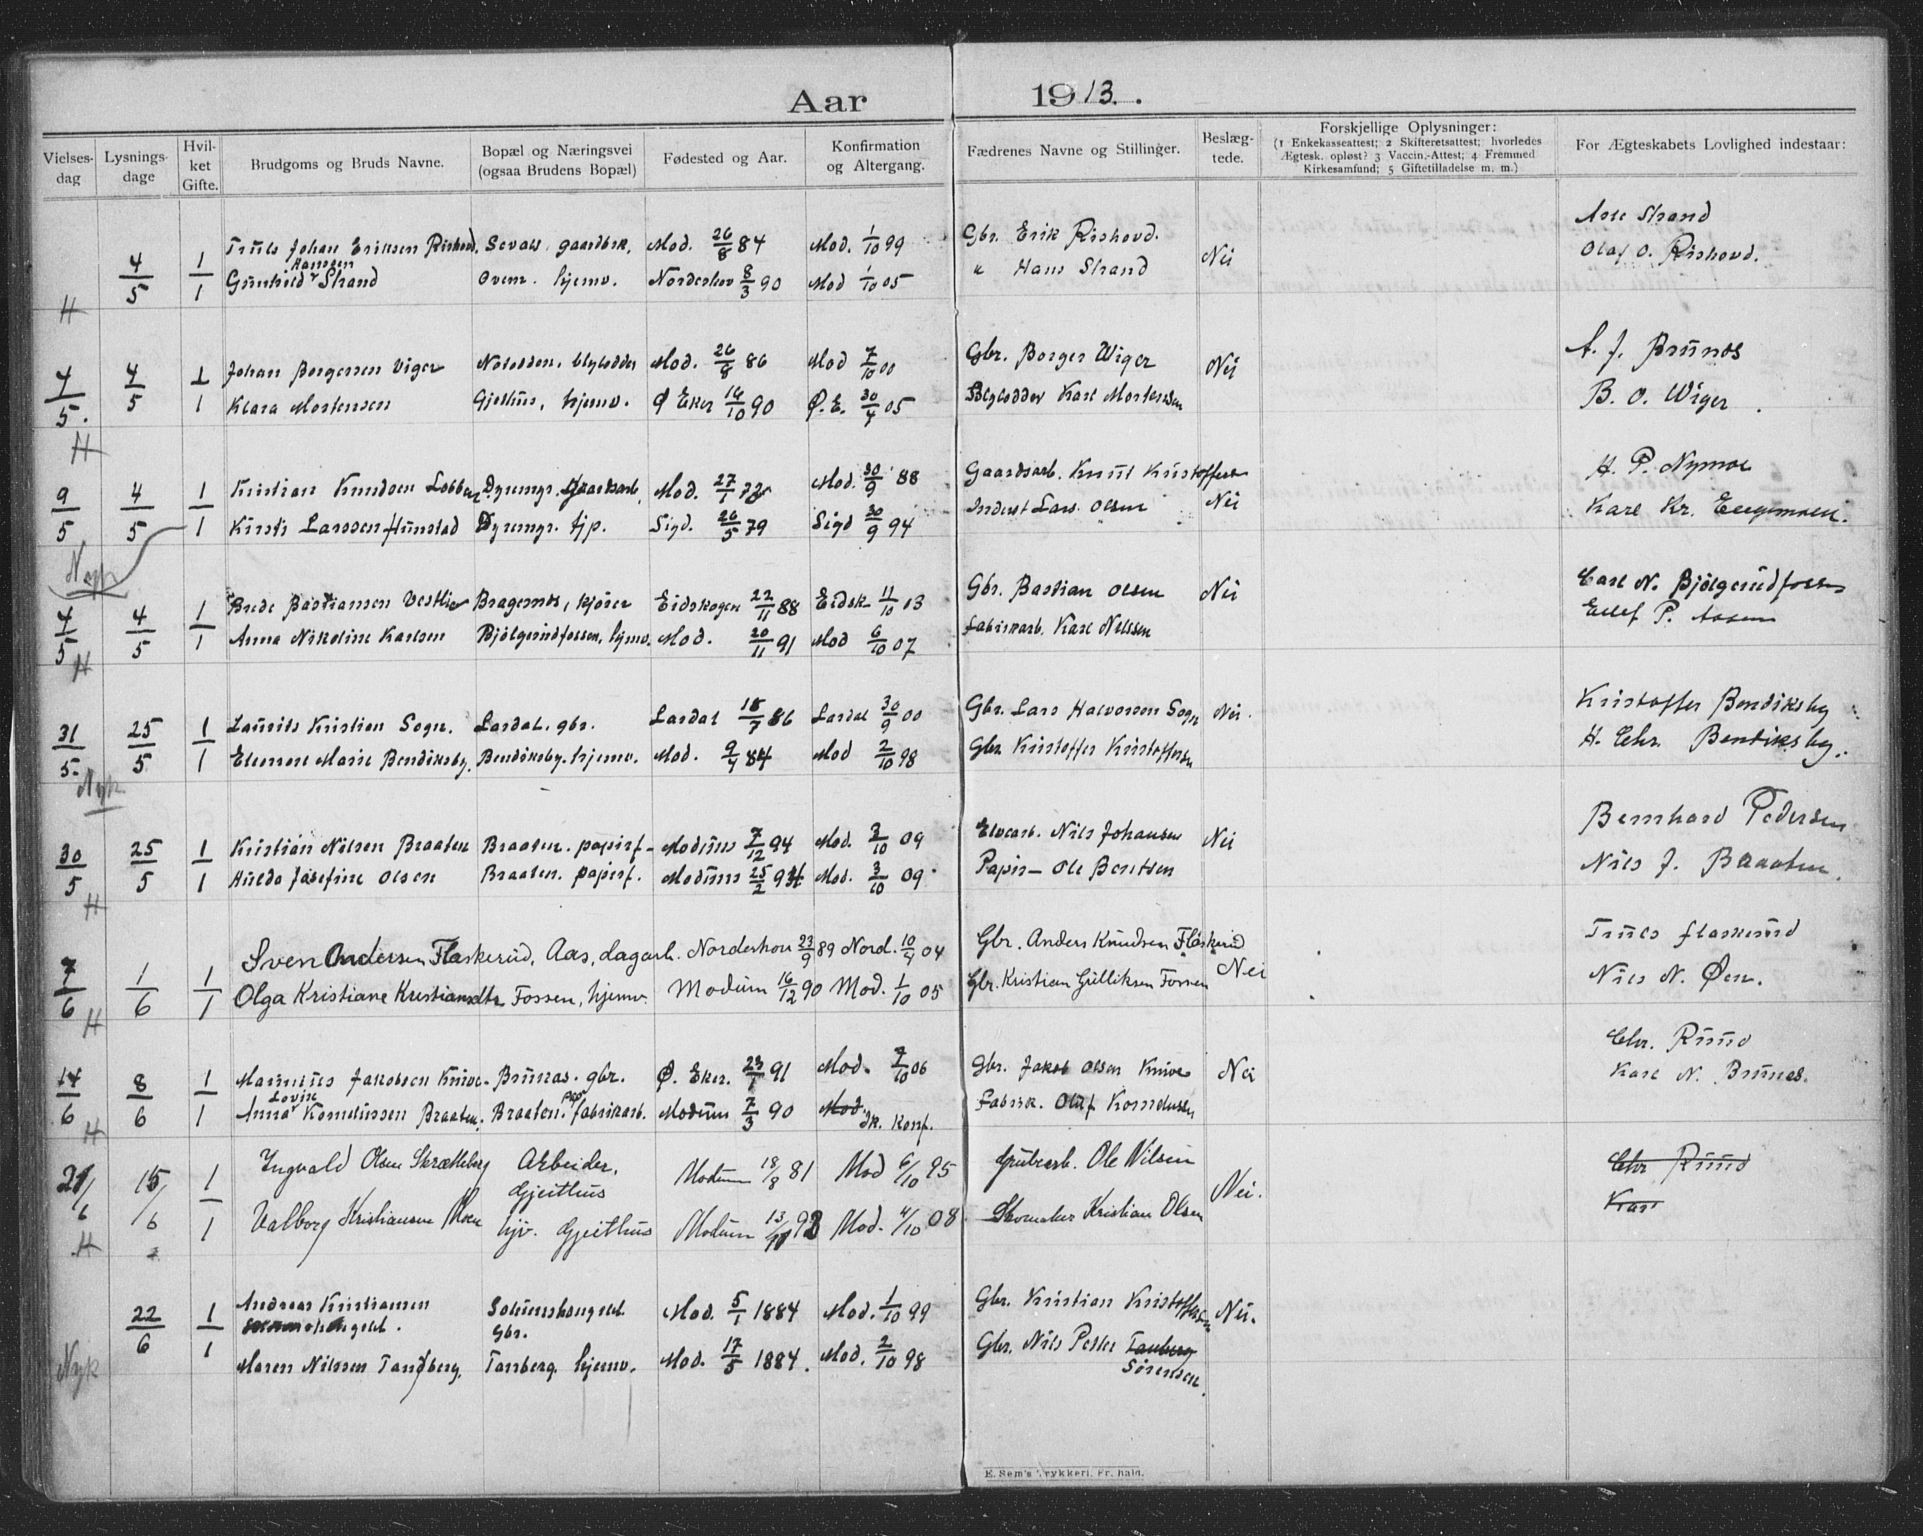 Aar 1913.
Vielses-dag | Lysnings-dage | Hvil-ket Gifte. | Brudgoms og Bruds Navne. | Bopæl og Næringsvei (ogsaa Brudens Bopæl) | Fødested og Aar. | Konfirmation og Altergang. | Fædrenes Navne og Stillinger. | Beslæg-tede. | Forskjellige Oplysninger: (1 Enkekasseattest; 2 Skifteretsattest; hvorledes Ægtesk. opløst? 3 Vaccin.-Attest; 4 Fremmed Kirkesamfund; 5 Giftetilladelse m. m.) | For Ægteskabets Lovlighed indestaar:
4/5 1/1 Truls Johan Eriksen Rishovd. gaardbrk. Mod. 26/8 84 Mod. 1/10 99 Gbr. Erik Rishovd. Nei Strand
Hanssen
Gunhild Strand hjemv. Norderhov 8/3 90 Mod 1/10 05 " Hans Strand Olaf O. Rishovd.
H
4/5. 4/5 1/1 Johan Borgersen Viger Notodden, blylodder Mod. 26/8 86 Mod 7/10 00 Gbr. Borger Wiger Nei A. J. Brunes
Klara Mortensen Gjethus, hjemv. Ø Eker 16/10 90 Ø. E. 30/4 05 Blylodder Karl Mortensen B. O. Wiger.
H
9/5 4/5 1/1 Kristian Knudsen Dyrmyr. Gaardsarb. Mod. 27/1 Mod. 30/9 88 Gaardsarb. Knut Kristoffers Nei H. P. Nymoe
Kirsti Larssen Hunstad Dyrmyr. tjp. Sigd. 26/5 79 Sigd 30/9 94 Inderst Lars Olsen Karl Kr.
Nyk
4/5 4/5 1/1 Brede Bastiansen Vestlie Bragernes, kjører Eidskogen 22/11 88 Eidsk. 11/10 03 Gbr. Bastian Olsen Nei Carl N. Bjølgerudfossen
Anna Nikoline Karlsen Bjølgerudfossen, hjemv. Mod. 20/11 91 Mod 6/10 07 Fabrikarb. Karl Nilssen Ellef P. Aasen
H
31/5. 25/5 1/1 Laurits Kristian Sogn. Lardal. gbr. Lardal 15/7 86 Lardal 30/9 00 Gbr. Lars Halvorsen Sogn Nei. Kristoffer Bendiksby
Elenore Marie Bendiksby. Bendiksby. hjemv. Mod. 9/4 84 Mod 2/10 98 Gbr Kristoffer Kristoffersen H. Chr. Bendiksby.
Nyk
30/5 25/5 1/1 Kristian Nilsen Braaten Braaten. papirf- Modum 7/12 94 Mod. 3/10 09 Elvearb. Nils Johansen Nei Bernhard Pedersen
Hulda Josefine Olsen Braaten. papirf. Modum 25/2 94 Mod. 3/10 09 Papir- Ole Bentsen Nils J. Braaten.
H
7/6 1/6 1/1 Sven Andersen Flaskerud, Aas, dagarb. Norderhov 23/9 89 Nord. 10/4 04 Gbr. Anders Knudsen Flaskerud Nei Truls Flaskerud
Olga Kristiane Kristiansdtr Fossen, hjemv. Modum 16/12 90 Mod. 1/10 05 Gbr. Kristian Gulliksen Fossen Nils N. Øen.
H
14/6 8/6 1/1 Magnus Jakobsen Knive. Brunes. gbr. Ø. Eker. 23/1 91 Mod. 7/10 06 Gbr. Jakob Olsen Knive Nei Chr. Ruud
Lovise
Anna Korneliussen Braaten. Braaten. fabrikarb. Modum 7/3 90 Mod. Ik. Konf. Fabrik. Oluf Korneliussen Karl N. Brunes.
H
21/6 15/6 1/1 Ingvald Olsen Skrætteberg Arbeider, Gjeithus Modum 18/8 81 Mod 6/10 95 Grubearb. Ole Nilsen Nei. Chr Ruud
Valborg Kristiansen Moen hjv. Gjeithus Modum 13/10 93 Mod. 4/10 08 Skomaker Kristian Olsen Karl
H
22/6 1/1 Andreas Kristiansen Solumshongslet Gbr. Mod. 5/1 1884 Mod. 1/10 99 Gbr. Kristian Kristoffersen Nei.
Maren Nilssen Tandberg. Tanberg. hjemv. Mod. 17/5 1884. Mod. 2/10 98 Gbr. Nils Petter Tanberg
Sørensen.
Nyk
E. Sem's Trykkeri, Fr.hald.